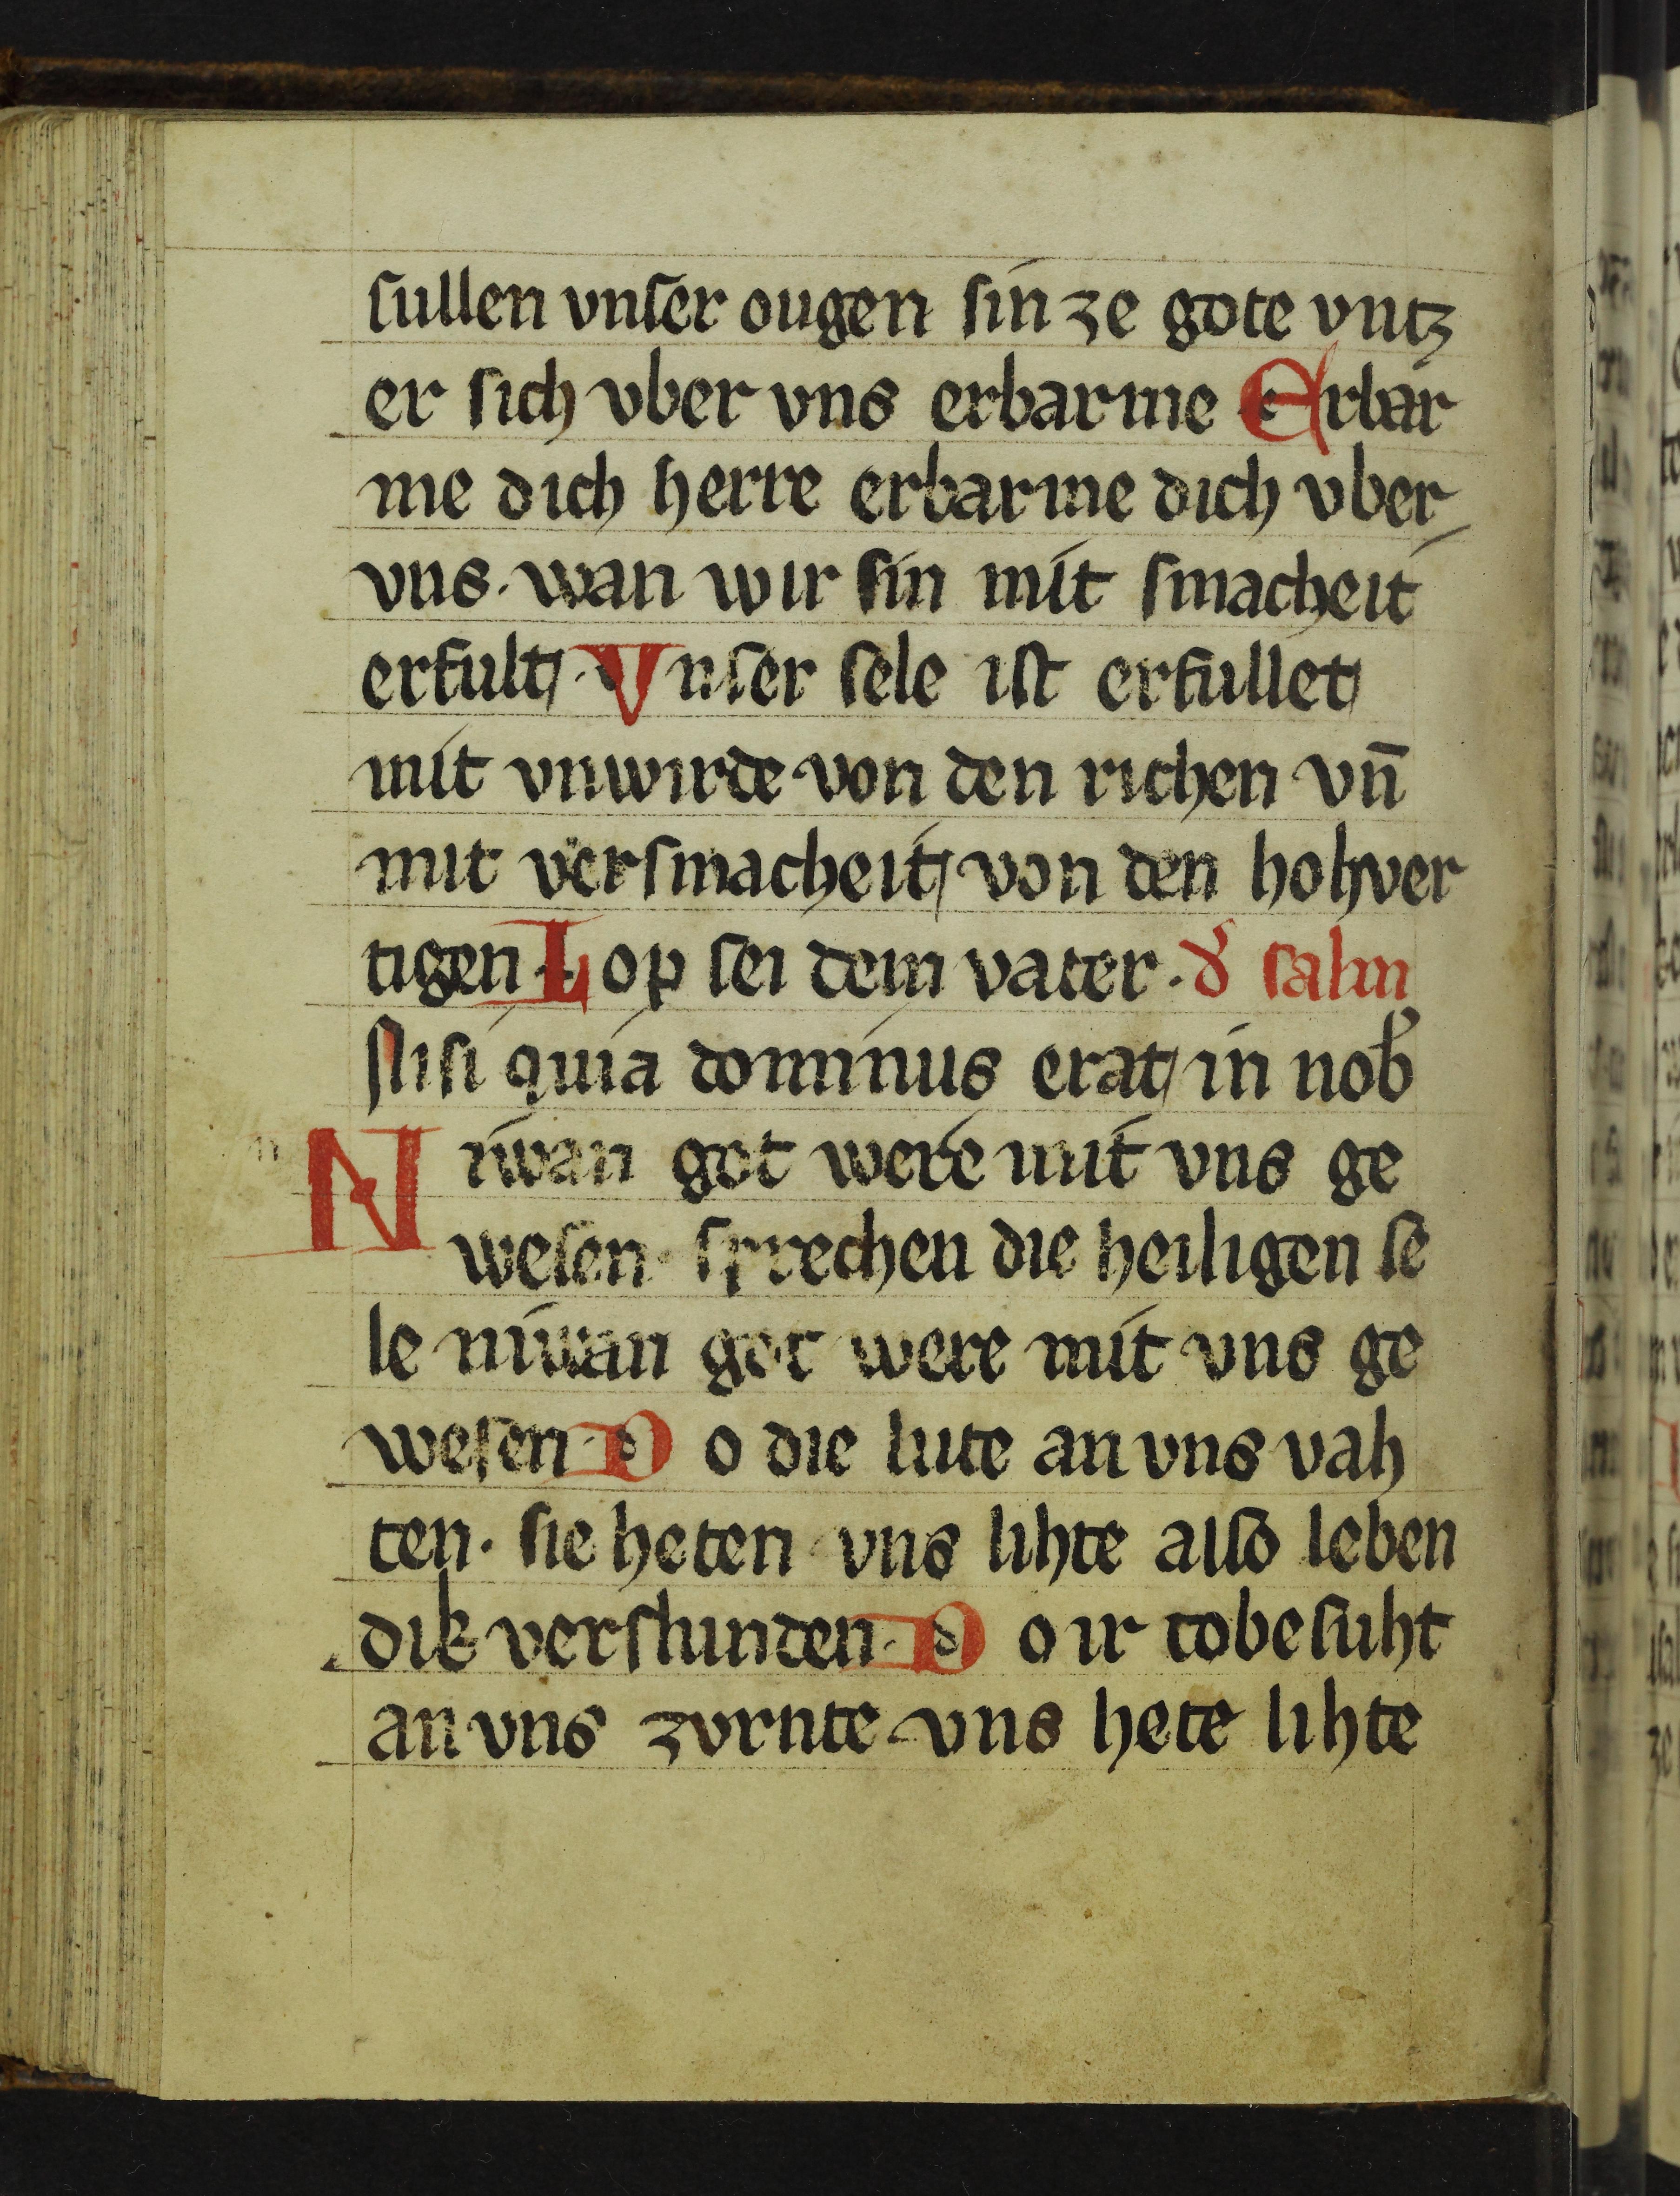 sullen vnser ougen sin ze gote vntz
er sich vber vns erbarme Erbar
me dich herre erbarme dich vber
vns. wan wir sin mit smacheit
erfult. Vnser sele ist erfullet
mit vnwirde von den richen vn̄
mit versmacheit von den hohver
tigen. Lop sei dem vater. d᾽ salm
Nisi quia dominus erat in nob᾽
Niwan got were mit vns ge
wesen. sprechen die heiligen se
le niwan got were mit vns ge
wesen. Do die lute an vns vah
ten. sie heten vns lihte also leben
dik verslunden. Do ir tobesuht
an vns zvrnte vns hete lihte